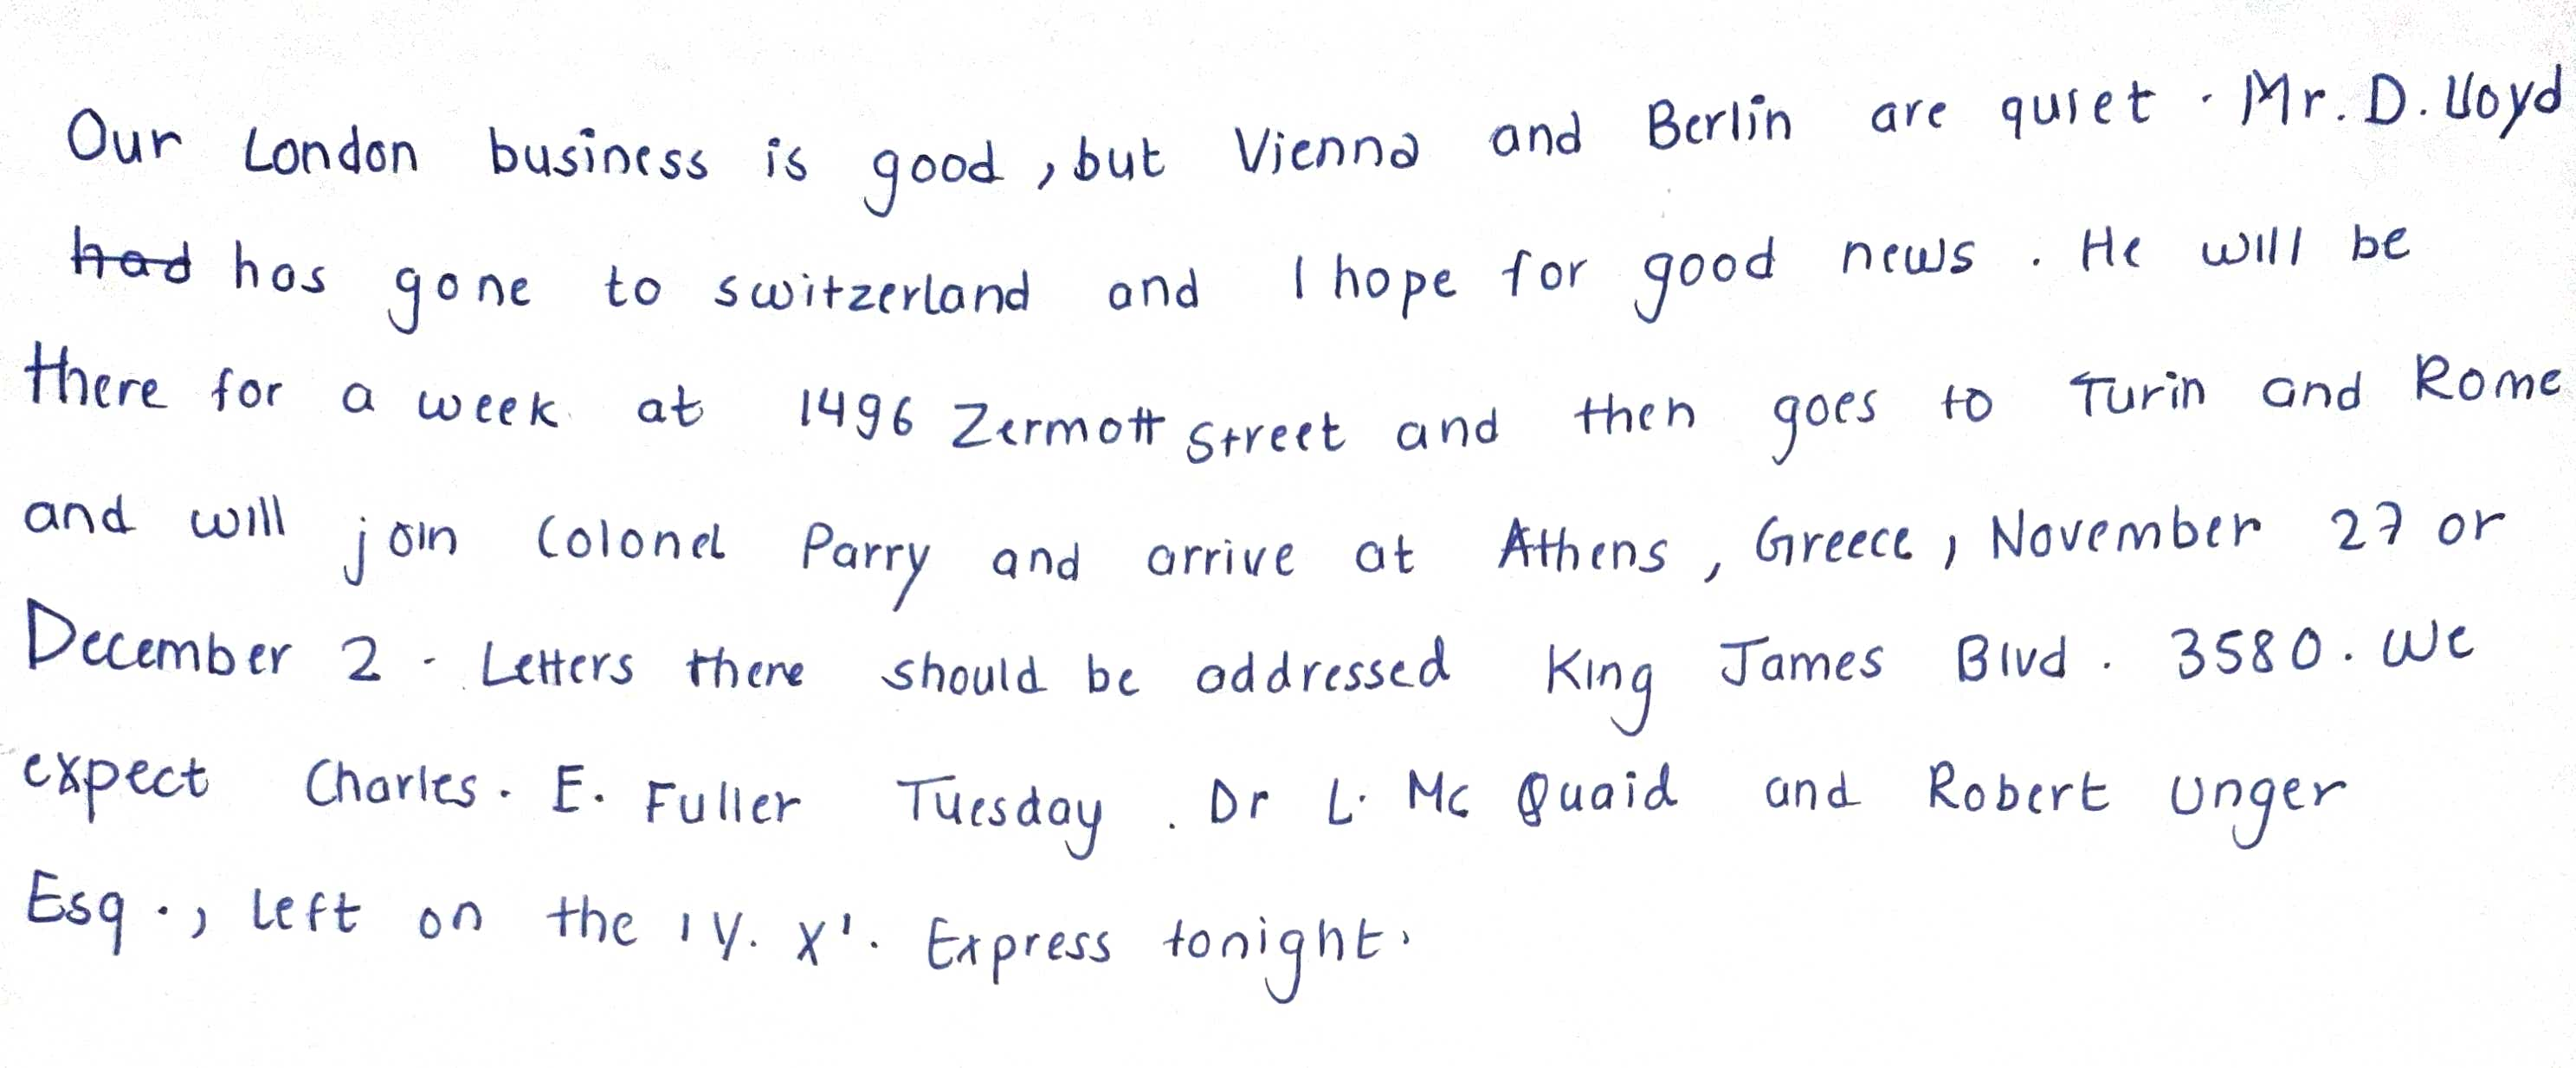 Our London business is good, but Vienna and Berlin are quiet. Mr. D. Lloyd
had has gone to switzerland and I hope for good news. He will be
there for a week at 1496 Zermott Street and then goes to Turin and Rome
and will join Colonel Parry and arrive at Athens, Greece, November 27 or
December 2. Letters there should be addressed King James Blvd. 3580. We
expect Charles. E. Fuller Tuesday. Dr L. Mc Quaid and Robert Unger
Esq., left on the 'Y. X'. Express tonight.